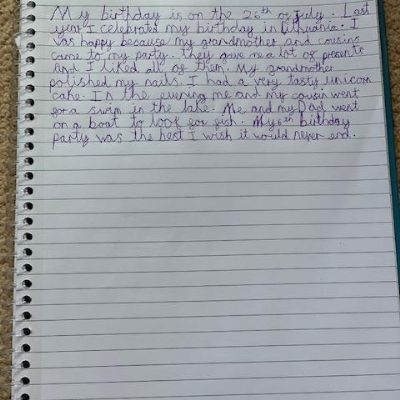 My birthday is on the 26th of july. Last
year I celebrated my birthday in Lithuania. I
was happy because my grandmother and cousins
came to my party. They gave me a lot of presents
and I liked all of them. My grandmother
polished my nails. I had a very tasty unicorn
cake. In the evening me and my cousin went
for a swim in the lake. Me and my Dad went
on a boat to look for fish. My 6th birthday
party was the best I wish it would never end.